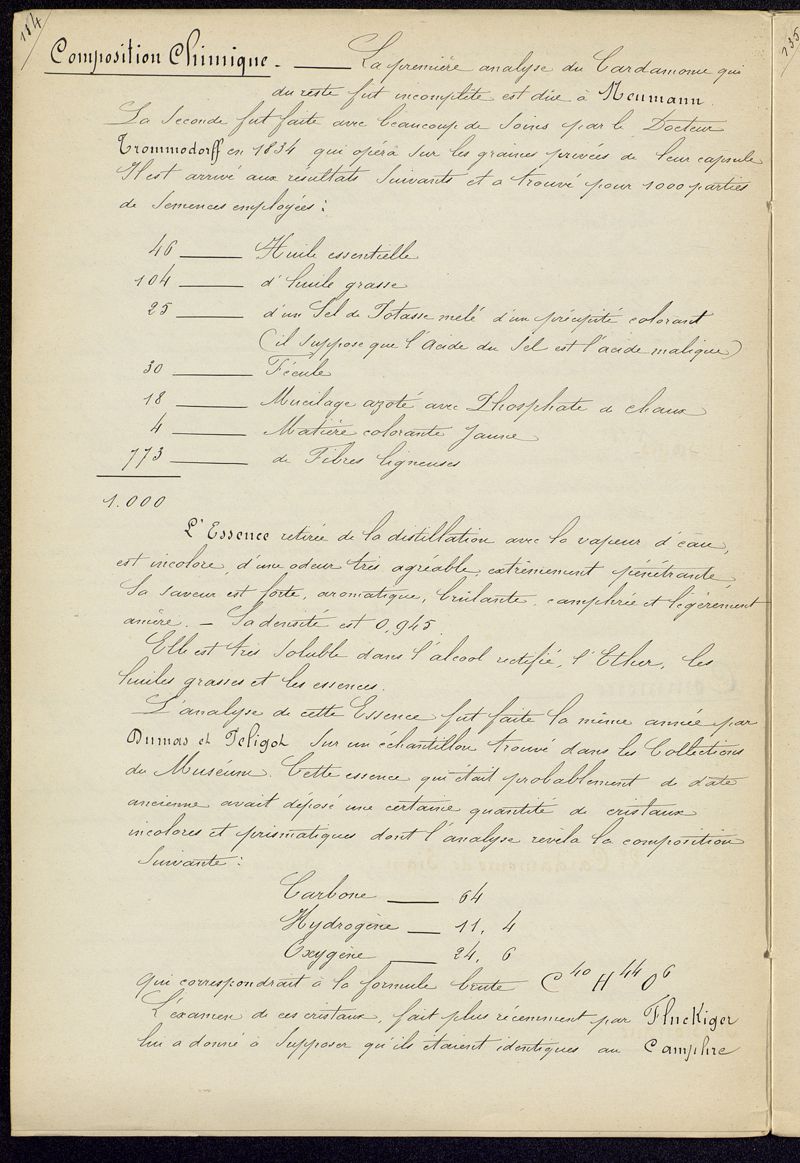 184
Composition Chimique. — La première analyse du Cardamome qui
du reste fut incomplète est due à Neumann.
La seconde fut faite avec beaucoup de soins par le Docteur
Trommodorff en 1834 qui opéra sur les graines privées de leur capsule
Il est arrivé aux resultats suivants et a trouvé pour 1000 parties
de semences employées :
46 — Huile essentielle
104 — d'huile grasse
25 — d'un Sel de Potasse mêlé d'un précipité colorant
(il suppose que l'Acide du Sel est l'acide malique)
30 — Fécule
18 — Mucilage azoté avec Phosphate de chaux
4 — Matière colorante jaune
773 — de Fibres ligneuses
1.000
L'Essence retirée de la distillation avec la vapeur d'eau,
est incolore, d'une odeur très agréable, extrêmement pénétrante,
Sa saveur est forte, aromatique, brûlante, camphrée et légèrement
amère. — Sa densité est 0,945.
Elle est très soluble dans l'alcool rectifié, l'Ether, les
huiles grasses et les essences.
L'analyse de cette Essence fut faite la même année par
Dumas et Peligot sur un échantillon trouvé dans les Collections
du Muséum. Cette essence qui était probablement de date
ancienne avait déposé une certaine quantité de cristaux
incolores et prismatiques dont l'analyse révéla la composition
suivante :
Carbone — 64
Hydrogène — 11, 4
Oxygène — 24, 6
qui correspondrait à la formule brute C⁴⁰ H⁴⁴ O⁶
L'examen de ces cristaux, fait plus récemment par Fluckiger
lui a donné à supposer qu'ils étaient identiques au Camphre
235